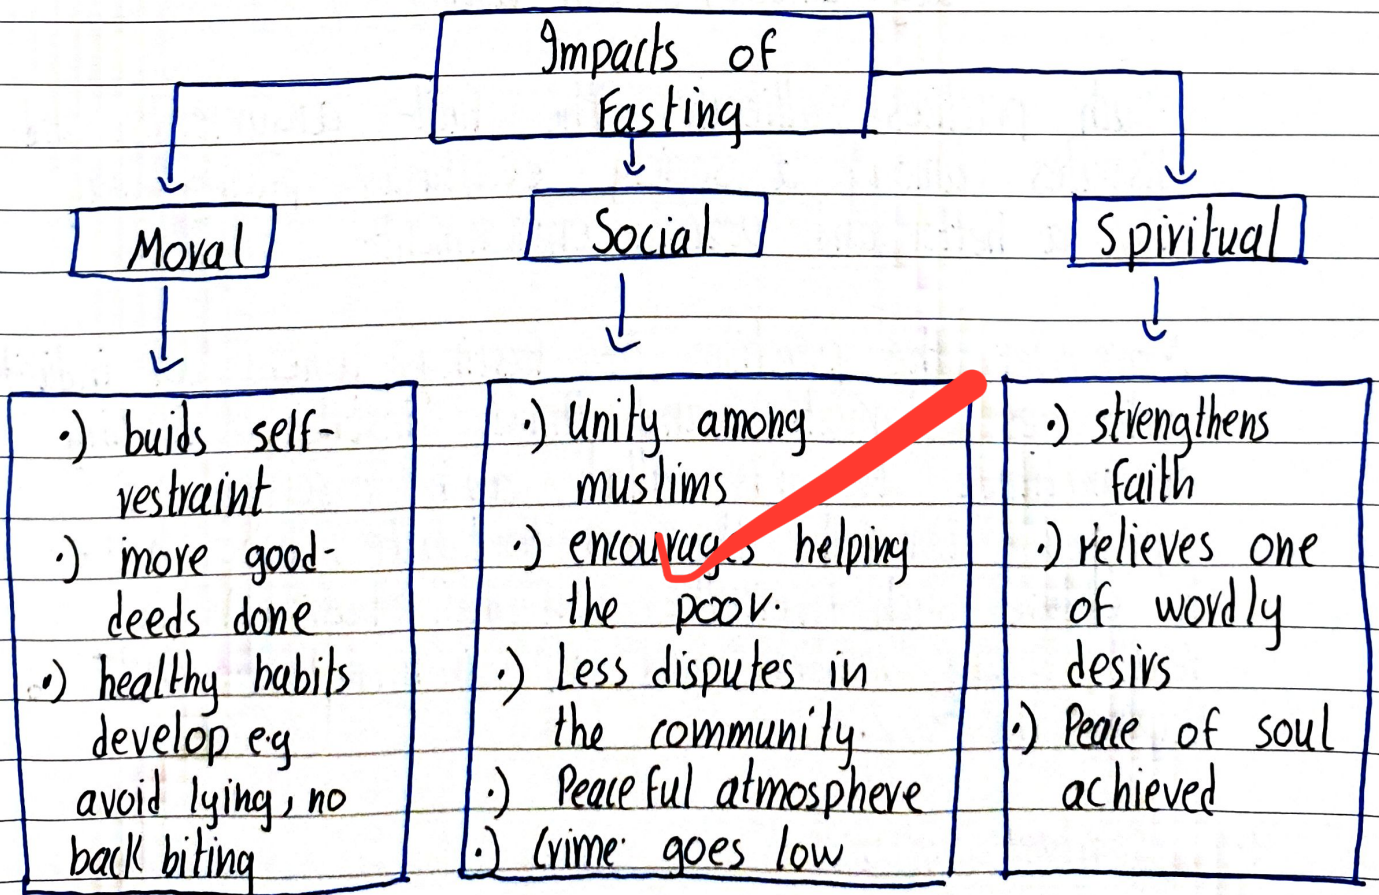 Impacts of
Fasting
Moral
Social
Spiritual
·) buids self-
restraint
·) more good-
deeds done
·) healthy habits
develop e.g
avoid lying, no
back biting
·) Unity among
muslims
·) encourages helping
the poor.
·) Less disputes in
the community.
·) Peaceful atmosphere
·) Crime goes low
·) strengthens
faith
·) relieves one
of wordly
desirs
·) Peace of soul
achieved